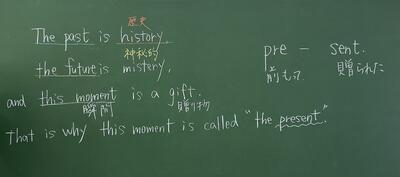 歴史
The past is history,
神秘的
the future is mistery,
and this moment is a gift.
瞬間 贈り物
That is why this moment is called "the present."
pre - sent.
前もって 贈られた